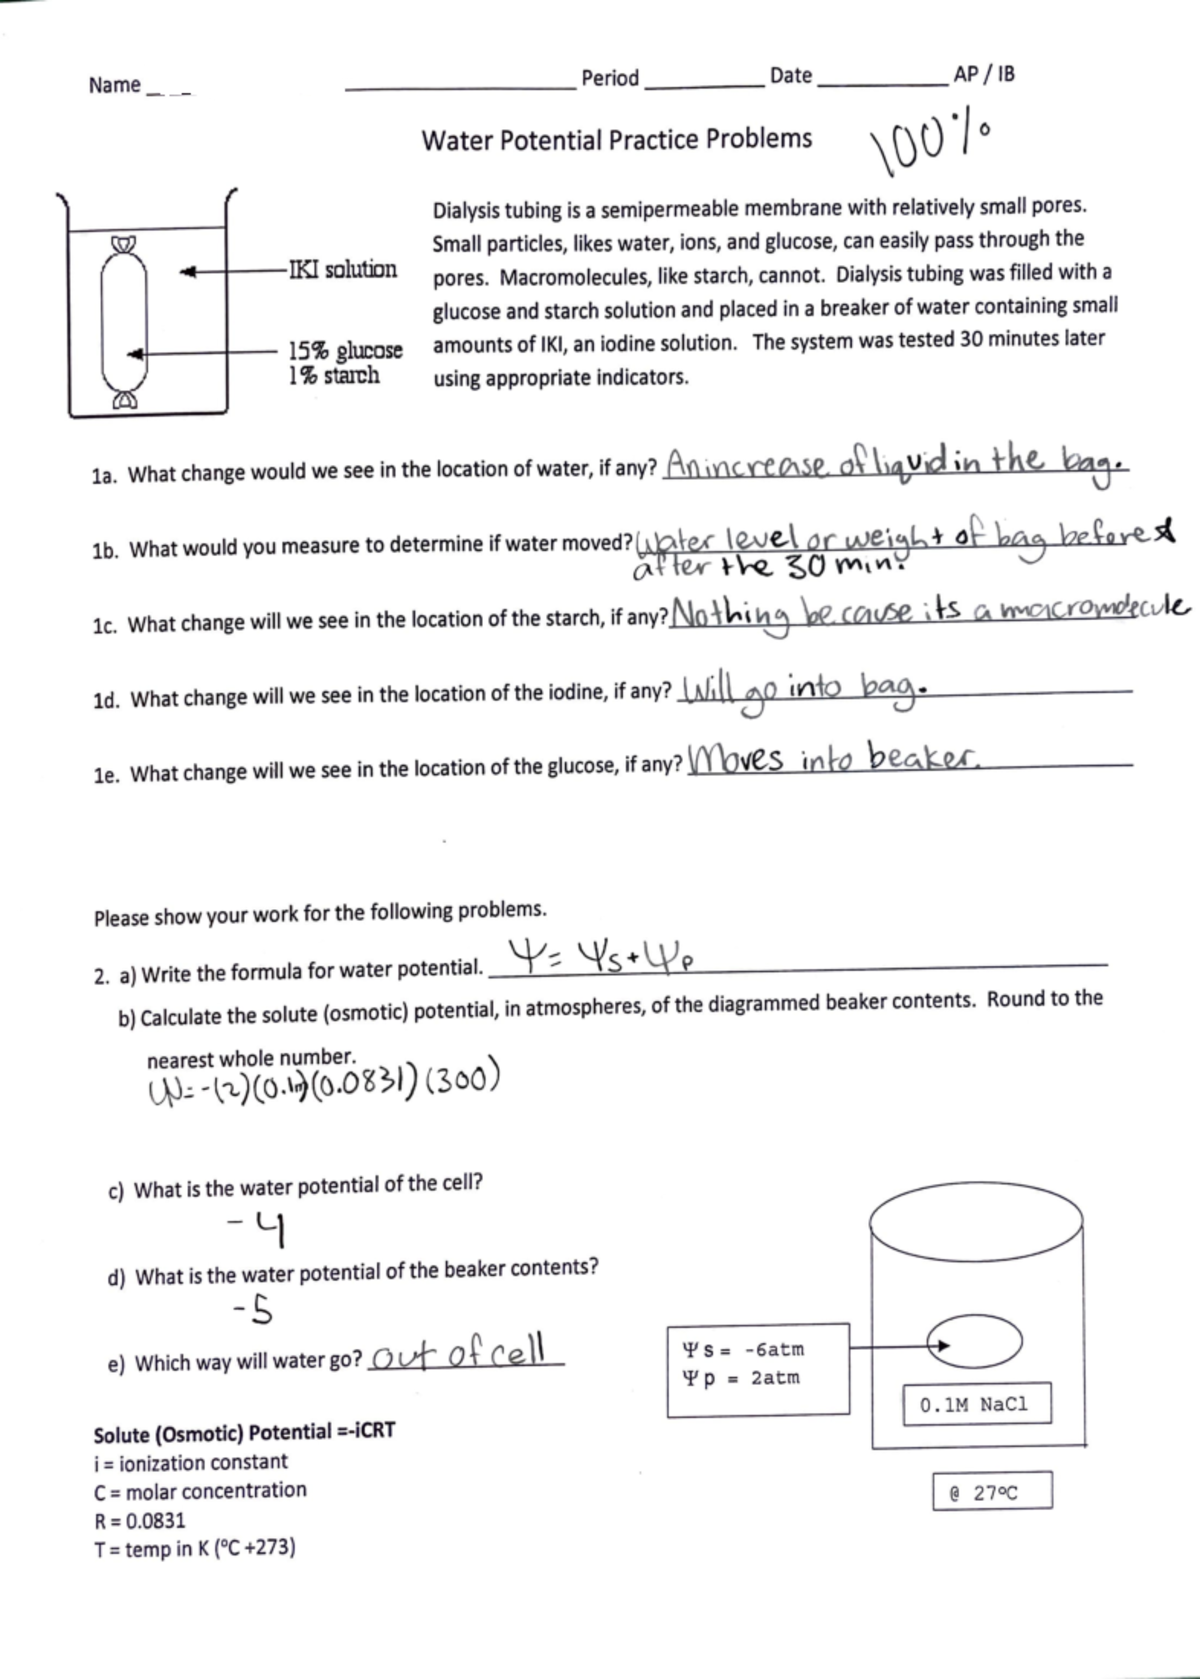 Name __ _ ____________ Period ________ Date _________ AP / IB
Water Potential Practice Problems
100%
IKI solution
15% glucose
1% starch
Dialysis tubing is a semipermeable membrane with relatively small pores.
Small particles, likes water, ions, and glucose, can easily pass through the
pores. Macromolecules, like starch, cannot. Dialysis tubing was filled with a
glucose and starch solution and placed in a breaker of water containing small
amounts of IKI, an iodine solution. The system was tested 30 minutes later
using appropriate indicators.
1a. What change would we see in the location of water, if any? An increase of liquid in the bag.
1b. What would you measure to determine if water moved? Water level or weight of bag before &
after the 30 min.
1c. What change will we see in the location of the starch, if any? Nothing because its a macromolecule
1d. What change will we see in the location of the iodine, if any? Will go into bag.
1e. What change will we see in the location of the glucose, if any? Moves into beaker.
Please show your work for the following problems.
2. a) Write the formula for water potential. Ψ = Ψs + Ψp
b) Calculate the solute (osmotic) potential, in atmospheres, of the diagrammed beaker contents. Round to the
nearest whole number.
Ψ = -(2)(0.1m)(0.0831)(300)
c) What is the water potential of the cell?
-4
d) What is the water potential of the beaker contents?
-5
e) Which way will water go? out of cell
Ψ s = -6atm
Ψ p = 2atm
0.1M NaCl
@ 27ºC
Solute (Osmotic) Potential =-iCRT
i = ionization constant
C = molar concentration
R = 0.0831
T = temp in K (ºC +273)